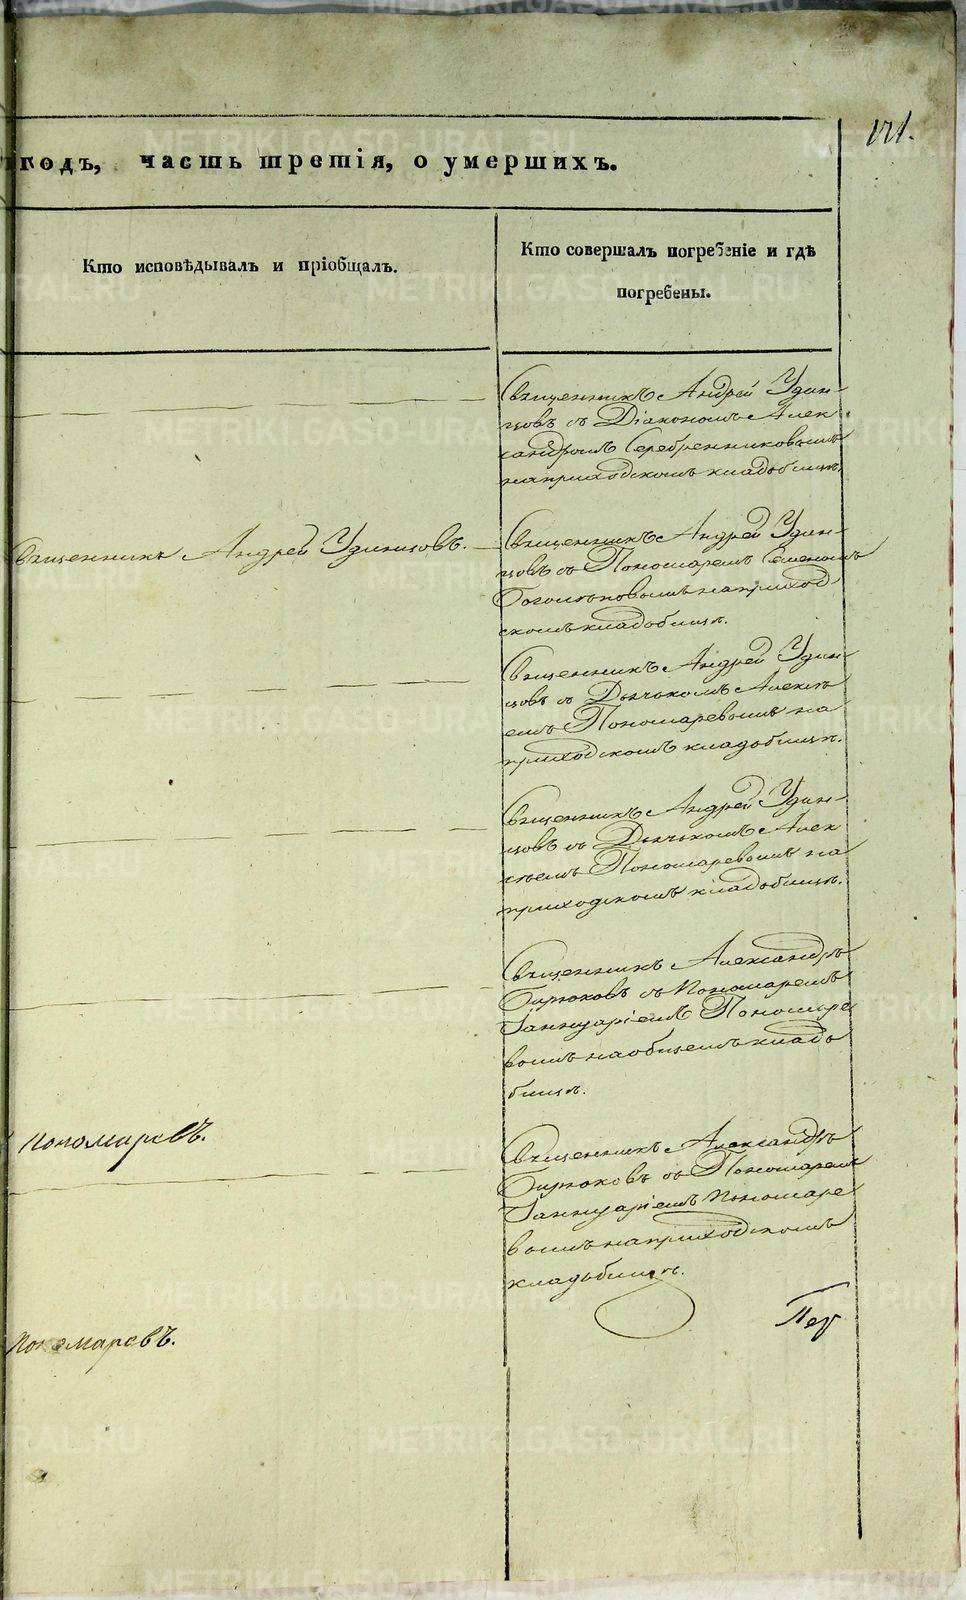 171.
годъ, часть третія, о умершихъ.
Кто исповѣдывалъ и пріобщалъ.
Кто совершалъ погребеніе и гдѣ
погребены.
Священникъ Андрей Удин-
цовъ съ Діакономъ Алек
сандромъ Серебренниковымъ
на приходскомъ кладбищѣ.
Священникъ Андрей Удинцовъ.
Священникъ Андрей Удин-
цовъ съ Пономаремъ Семеномъ
на приход
скомъ кладбищѣ.
Священникъ Андрей Удин-
цовъ съ Дьячкомъ Алексѣ
емъ Пономаревымъ на
приходскомъ кладбищѣ.
Священникъ Андрей Удин-
цовъ съ Дьячкомъ Алек
сѣемъ Пономаревымъ на
приходскомъ кладбищѣ.
Священникъ Александръ
Бирюковъ съ Пономаремъ
Іаннуаріемъ Пономаре
вымъ на общемъ кладъ
бищѣ.
Пономаревъ.
Священникъ Александръ
Бирюковъ съ Пономаремъ
Іаннуаріемъ Пономаре
вымъ на приходскомъ
кладьбищѣ.
Пономаревъ.
METRIKI.GASO-URAL.RU